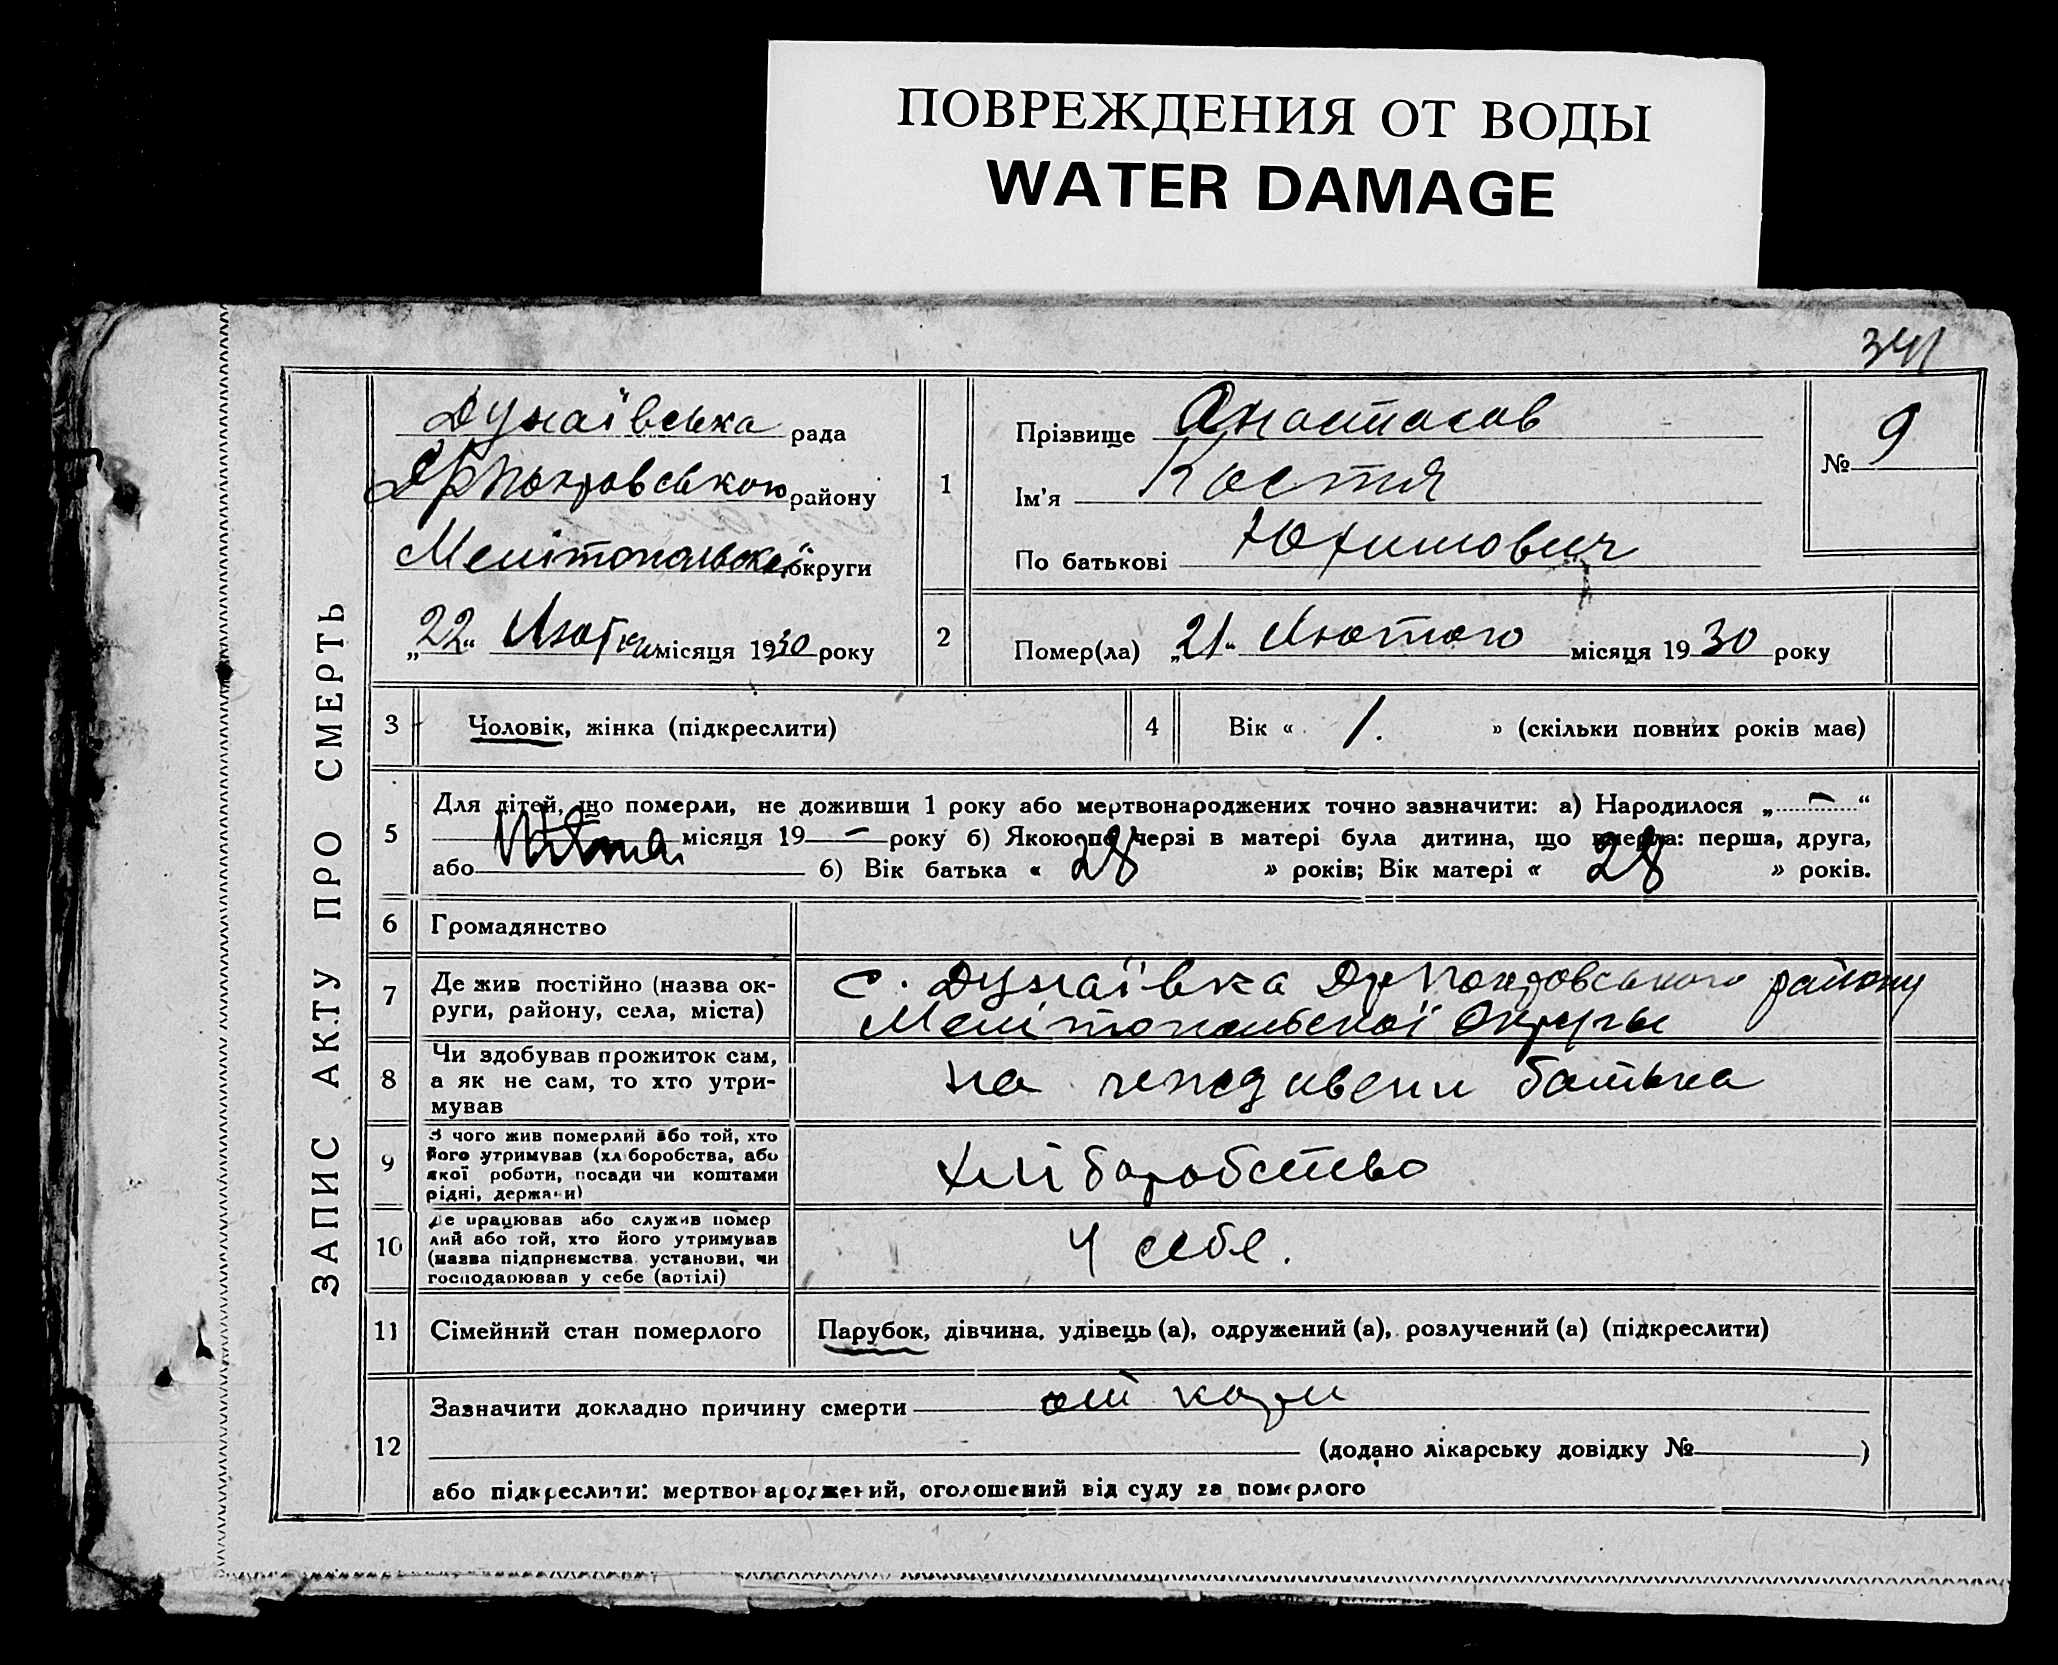 ПОВРЕЖДЕНИЯ ОТ ВОДЫ
WATER DAMAGE
341
ЗАПИС АКТУ ПРО СМЕРТЬ
Дунаївська рада
Дрпокровського району
Мелітопольської округи
„22“ Лютого місяця 1930 року
1
Прізвище Анастасов
Ім'я Костя
По батькові Юхимович
№ 9
2
Помер(ла) „21“ Лютого місяця 1930 року
3 Чоловік, жінка (підкреслити)
4 Вік « 1. » (скільки повних років має)
5
Для дітей, що померли, не доживши 1 року або мертвонароджених точно зазначити: а) Народилося „ — “
місяця 19 — року б) Якою по черзі в матері була дитина, що вмерла: перша, друга,
або б) Вік батька « 28 » років; Вік матері « 28 » років.
6 Громадянство
7 Де жив постійно (назва ок-
руги, району, села, міста)
с. Дунаївка Дрпокровського району
Мелітопольської Округи
8 Чи здобував прожиток сам,
а як не сам, то хто утри-
мував
на батька
9 З чого жив померлий або той, хто
його утримував (хліборобства, або
якої роботи, посади чи коштами
рідні, держави)
хліборобство
10 Де працював або служив помер
лий або той, хто його утримував
(назва підприємства установи, чи
господарював у себе (артілі)
У себе.
11 Сімейний стан померлого
Парубок, дівчина, удівець (а), одружений (а), розлучений (а) (підкреслити)
12
Зазначити докладно причину смерти від кори
(додано лікарську довідку № )
або підкреслити: мертвонароджений, оголошений від суду за померлого